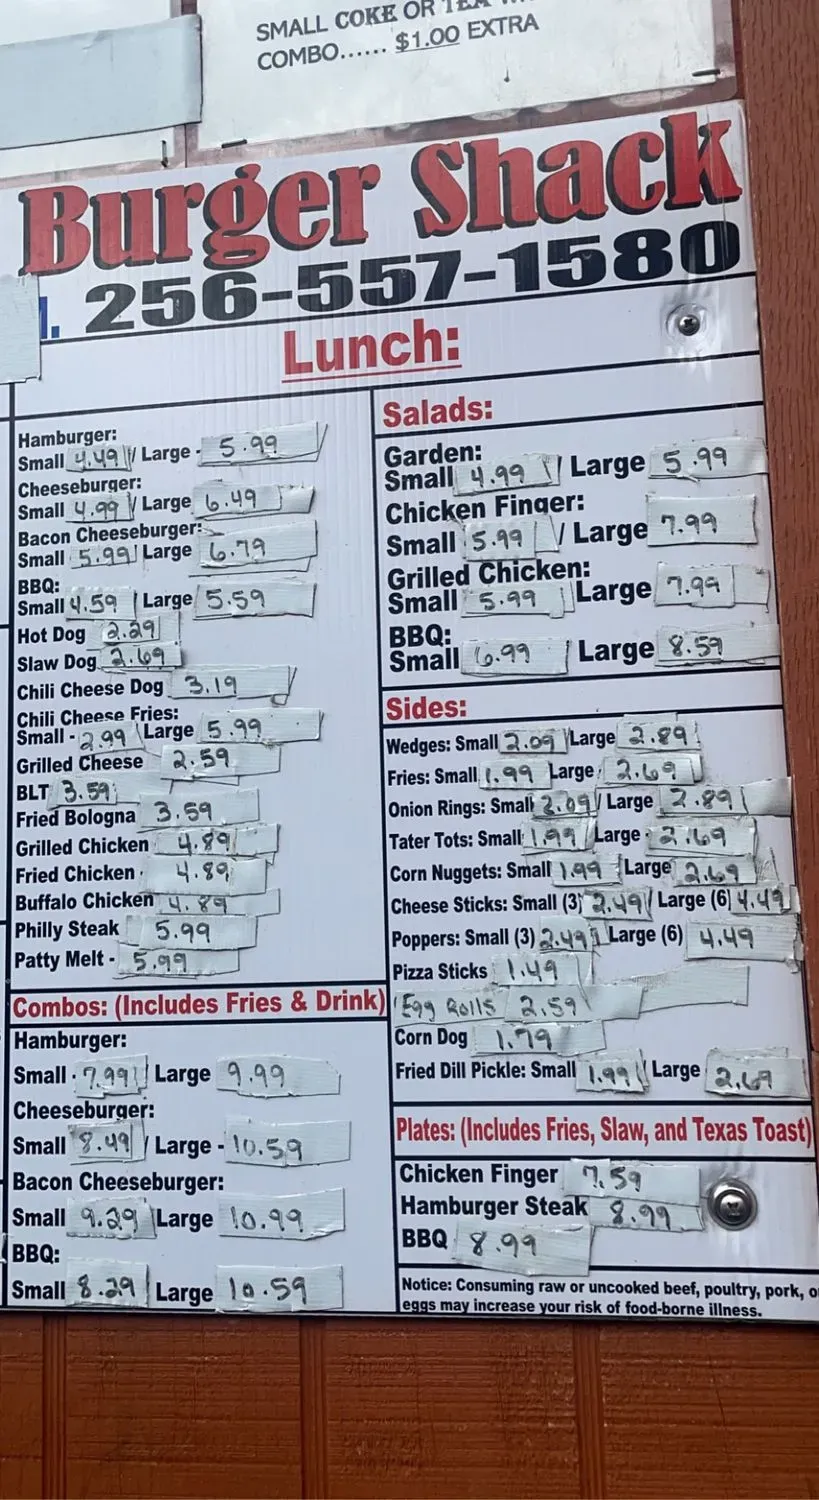 SMALL COKE OR TEA
COMBO...... $1.00 EXTRA
Burger Shack
256-557-1580
Lunch:
Hamburger:
Small 4.49 / Large - 5.99
Cheeseburger:
Small 4.99 / Large 6.49
Bacon Cheeseburger:
Small 5.99 Large 6.79
BBQ:
Small 4.59 Large 5.59
Hot Dog 2.29
Slaw Dog 2.69
Chili Cheese Dog 3.19
Chili Cheese Fries:
Small - 2.99 Large 5.99
Grilled Cheese 2.59
BLT 3.59
Fried Bologna 3.59
Grilled Chicken 4.89
Fried Chicken 4.89
Buffalo Chicken 4.89
Philly Steak 5.99
Patty Melt - 5.99
Combos: (Includes Fries & Drink)
Hamburger:
Small - 7.99 Large 9.99
Cheeseburger:
Small 8.49 / Large - 10.59
Bacon Cheeseburger:
Small 9.29 Large 10.99
BBQ:
Small 8.29 Large 10.59
Salads:
Garden:
Small 4.99 / Large 5.99
Chicken Finger:
Small 5.99 / Large 7.99
Grilled Chicken:
Small 5.99 Large 7.99
BBQ:
Small 6.99 Large 8.59
Sides:
Wedges: Small 2.09 / Large 2.89
Fries: Small 1.99 Large 2.69
Onion Rings: Small 2.09 / Large 2.89
Tater Tots: Small 1.99 Large - 2.69
Corn Nuggets: Small 1.99 Large 2.69
Cheese Sticks: Small (3) 2.49 / Large (6) 4.49
Poppers: Small (3) 2.49 Large (6) 4.49
Pizza Sticks 1.49
Egg Rolls 2.59
Corn Dog 1.79
Fried Dill Pickle: Small 1.99 Large 2.69
Plates: (Includes Fries, Slaw, and Texas Toast)
Chicken Finger 7.59
Hamburger Steak 8.99
BBQ 8.99
Notice: Consuming raw or uncooked beef, poultry, pork, o
eggs may increase your risk of food-borne illness.